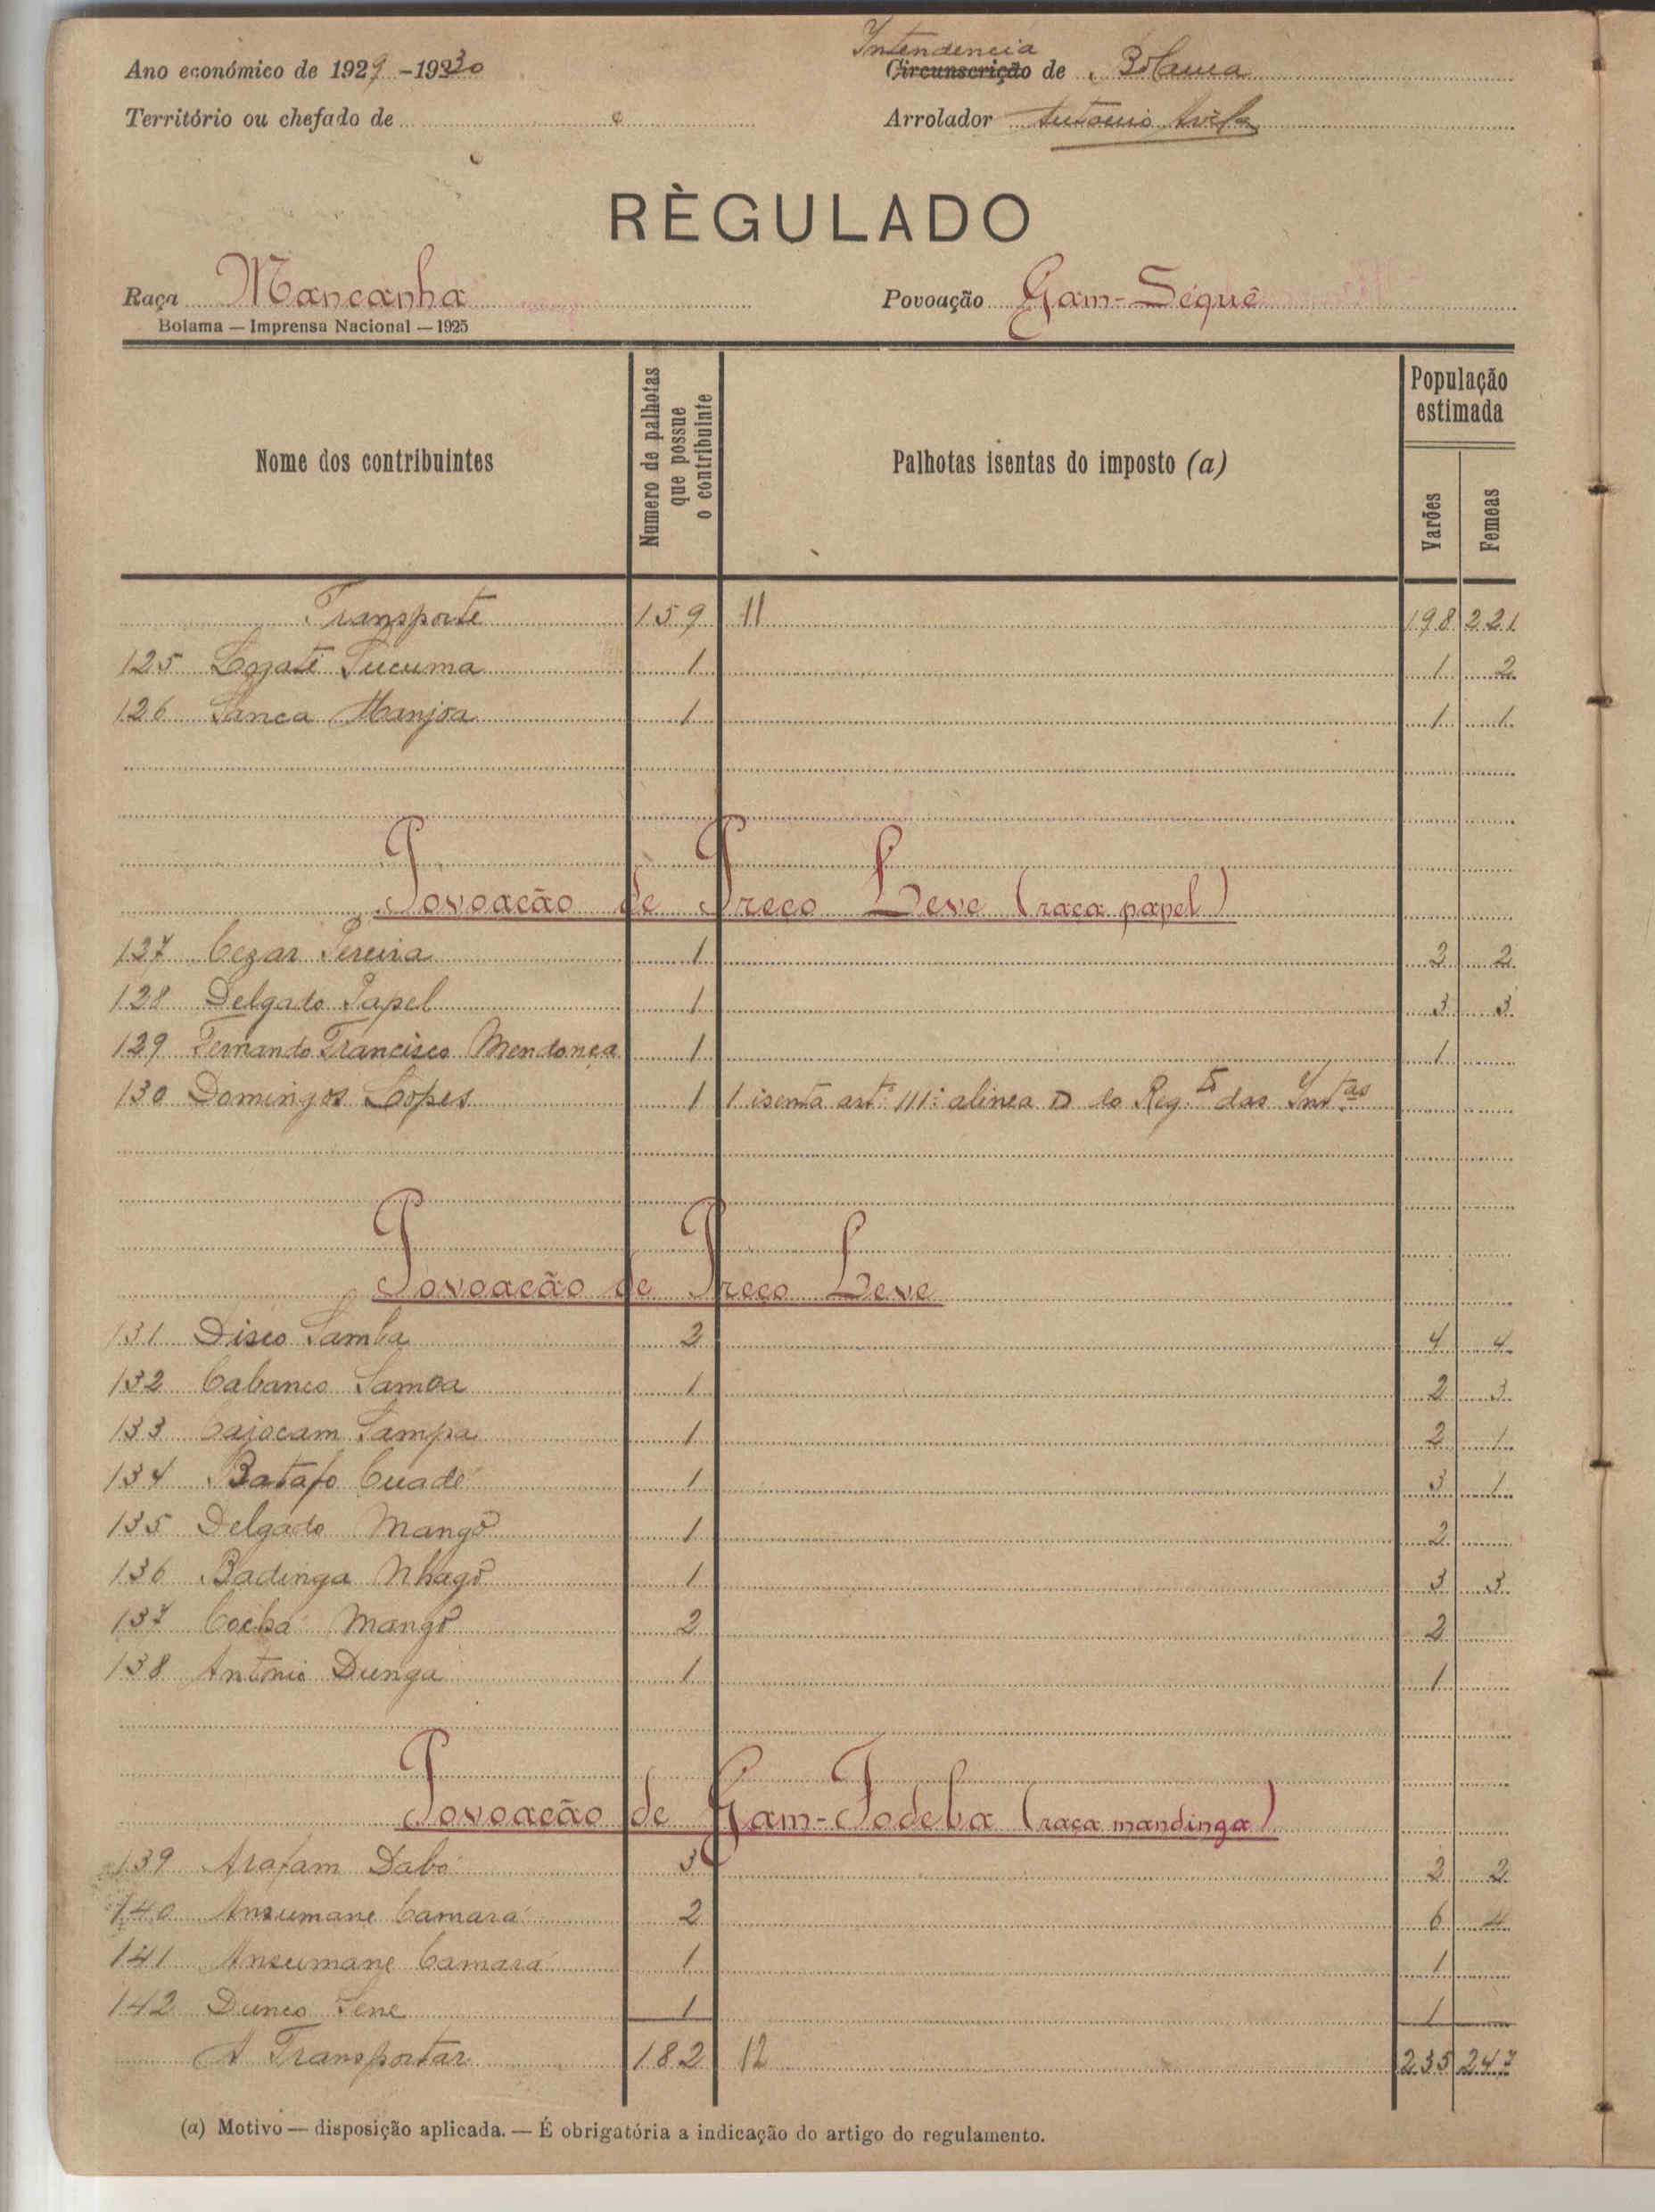 Ano económico de 1929-1930
Intendencia
Circunscrição de Bolama
Território ou chefado de
Arrolador Antonio Avila
RÈGULADO
Raça Mancanha
Povoação Gam-Séquê
Bolama — Imprensa Nacional — 1925
Nome dos contribuintes
Numero de palhotas que possue o contribuinte
Palhotas isentas do imposto (a)
População estimada
Varões
Femeas
Transporte 159 11 198 221
125 Lozate Tucuma 1 1 2
126 Sanca Manjoa 1 1 1
Povoacão de Preco Leve (raca papel)
127 Cezar Pereira 1 2 2
128 Delgado Papel 1 3 3
129 Fernando Francisco Mendonça 1 1
130 Domingos Lopes 1 1 isenta artº 111º alinea D do Reg.to das Int.as
Povoacão de Preco Leve
131 Disco Samba 2 4 4
132 Cabanco Samoa 1 2 3
133 Cajocam Sampa 1 2 1
134 Batafo Cuadé 1 3 1
135 Delgado Mangô 1 2
136 Badinga Nhagô 1 3 3
137 Cochá Mangô 2 2
138 António Dunga 1 1
Povoacão de Gam-Fodeba (raca mandinga)
139 Arafam Dabó 3 2 2
140 Ansumane Camará 2 6 4
141 Ansumane Camará 1 1
142 Dunco Sene 1 1
A Transportar 182 12 235 247
(a) Motivo — disposição aplicada. — É obrigatória a indicação do artigo do regulamento.